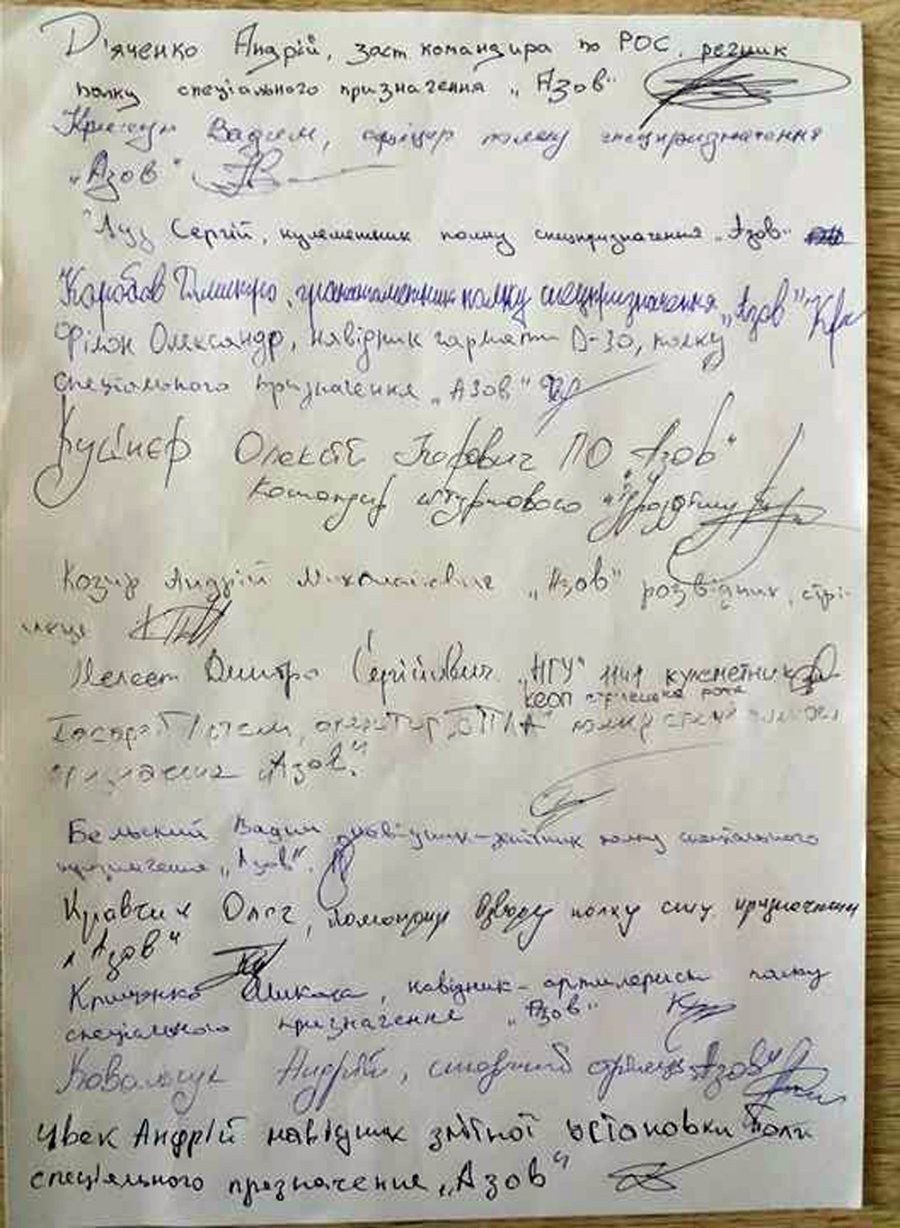 Д'яченко Андрій, заст командира по РОС, речник
полку спеціального призначення „Азов"
Вадим, офіцер полку спецпризначення
„Азов"
Сергій, кулеметник полку спецпризначення „Азов"
Коробов гранатометник полку спецпризначення „Азов"
Філон Олександр, навідник гармати D-30, полку
спеціального призначення „АЗОВ"
Олексій ПО „Азов"
Командир штурмового
Козир Андрій Михайлович „Азов" розвідник, стрі-
лець
Пелест Дмитро Сергійович „НГУ" 1141 кулеметник
стрілецька рота
оператор „БПЛА" полку
„Азов".
Бельский Вадим полку спеціального
призначення „Азов".
Олег, командир взводу полку спец. призначення
„Азов"
Микола, навідник-артилерист полку
спеціального призначення „Азов"
Ковальчук Андрій, старший стрілець „Азов"
Андрій навідник зенітної установки
спеціяльного презначение „Азов"